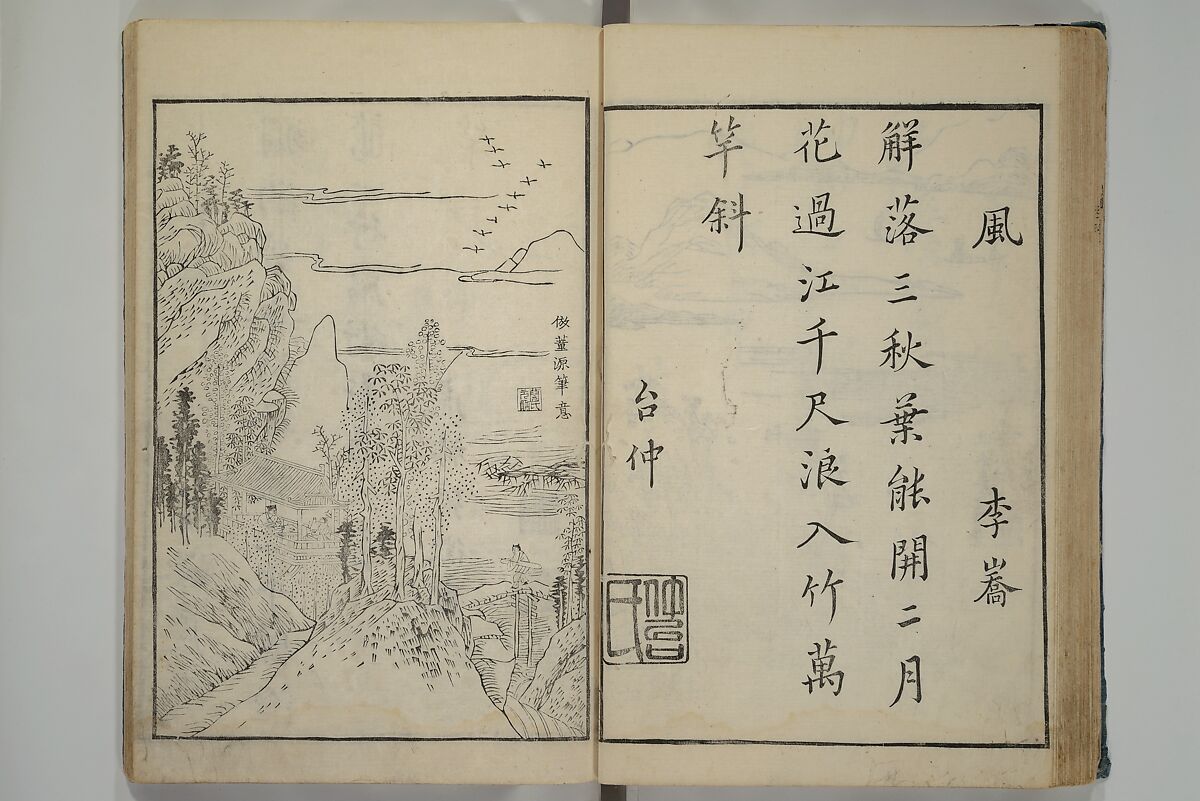 風　李嶠
觧落三秋葉能開二月
花過江千尺浪入竹萬
竿斜
台仲
倣董源筆意